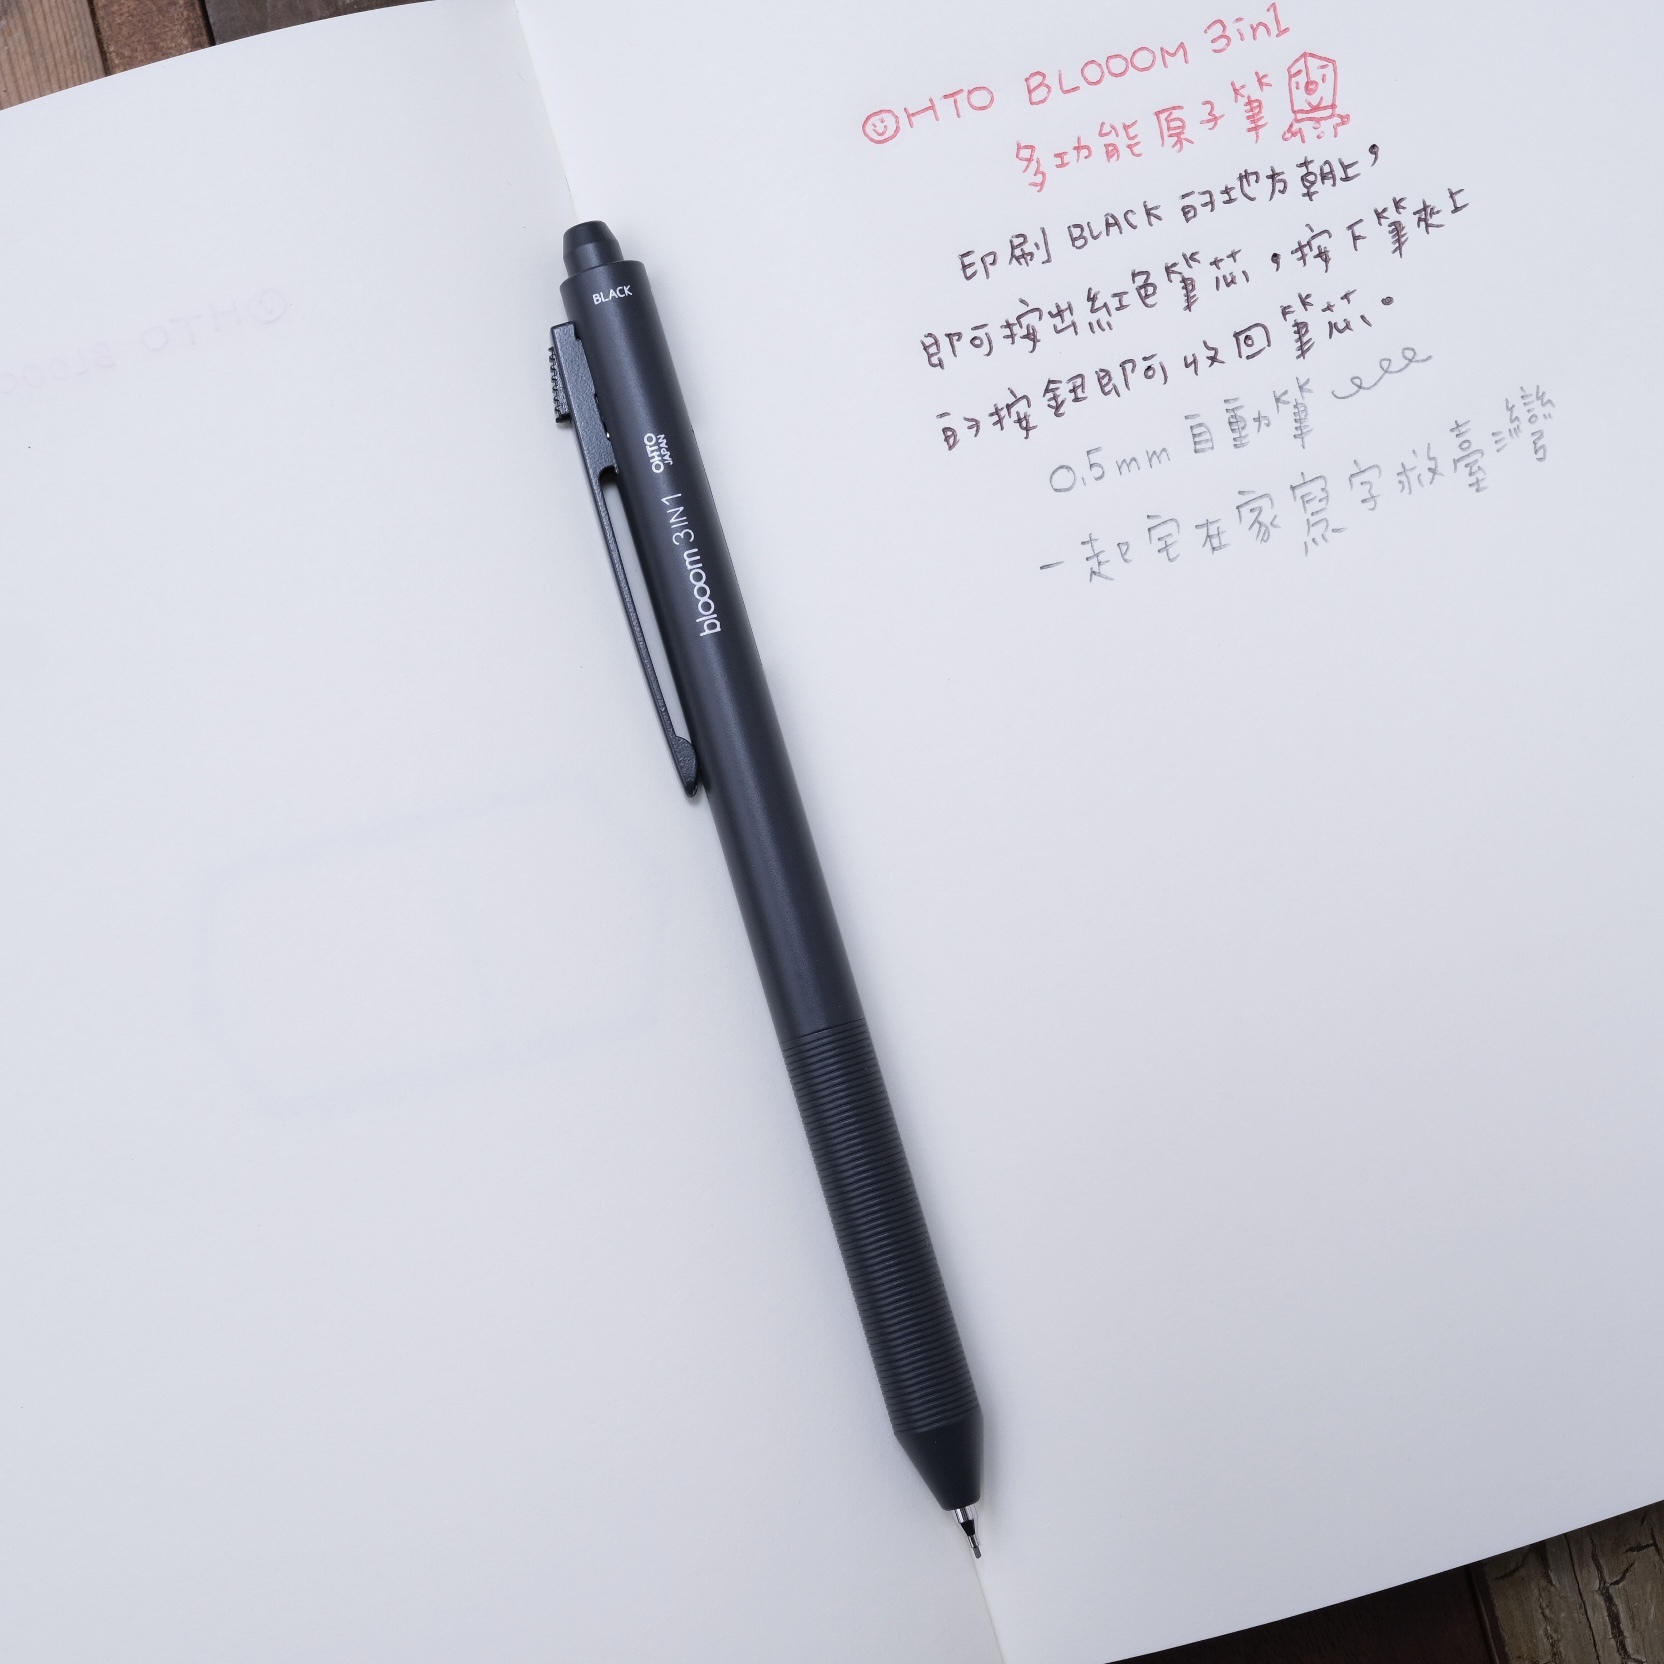 OHTO BLOOOM 3in1
多功能原子筆
印刷 BLACK 的地方朝上，
即可按出紅色筆芯，按下筆夾上
的按鈕即可收回筆芯。
0.5mm 自動筆
一起宅在家寫字救臺灣
BLACK
OHTO
JAPAN
blooom 3IN1